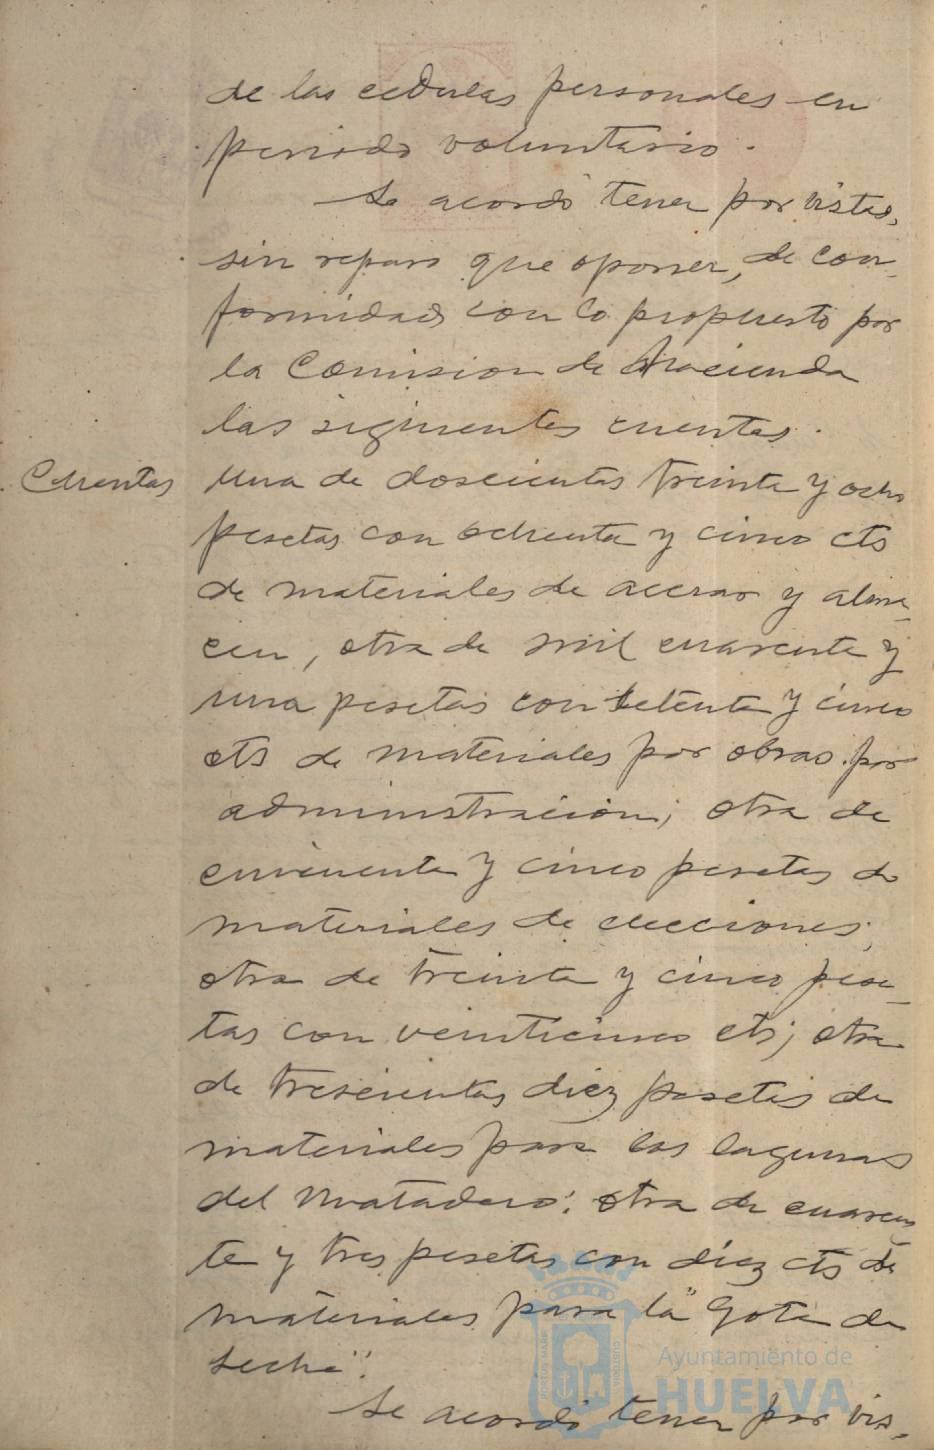 de las cedulas personales en
periodo voluntario.
Se acordó tener por vistas,
sin reparo que oponer, de con-
formidad con lo propuesto por
la Comision de Hacienda
las siguientes cuentas.
Cuentas
Una de doscientas treinta y ocho
pesetas con ochenta y cinco cts
de materiales de acerao y alma-
cen, otra de mil cuarenta y
una pesetas con setenta y cinco
cts de materiales por obras por
administracion; otra de
cincuenta y cinco pesetas de
materiales de elecciones;
otra de treinta y cinco pese-
tas con veinticinco cts; otra
de trescientas diez pesetas de
materiales para las lagunas
del Matadero; otra de cuaren-
ta y tres pesetas con diez cts de
materiales para la "Gota de
Leche".
Se acordó tener por vis-
Ayuntamiento de
HUELVA